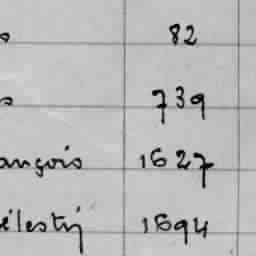 82
739
ançois 1627
élestin 1694